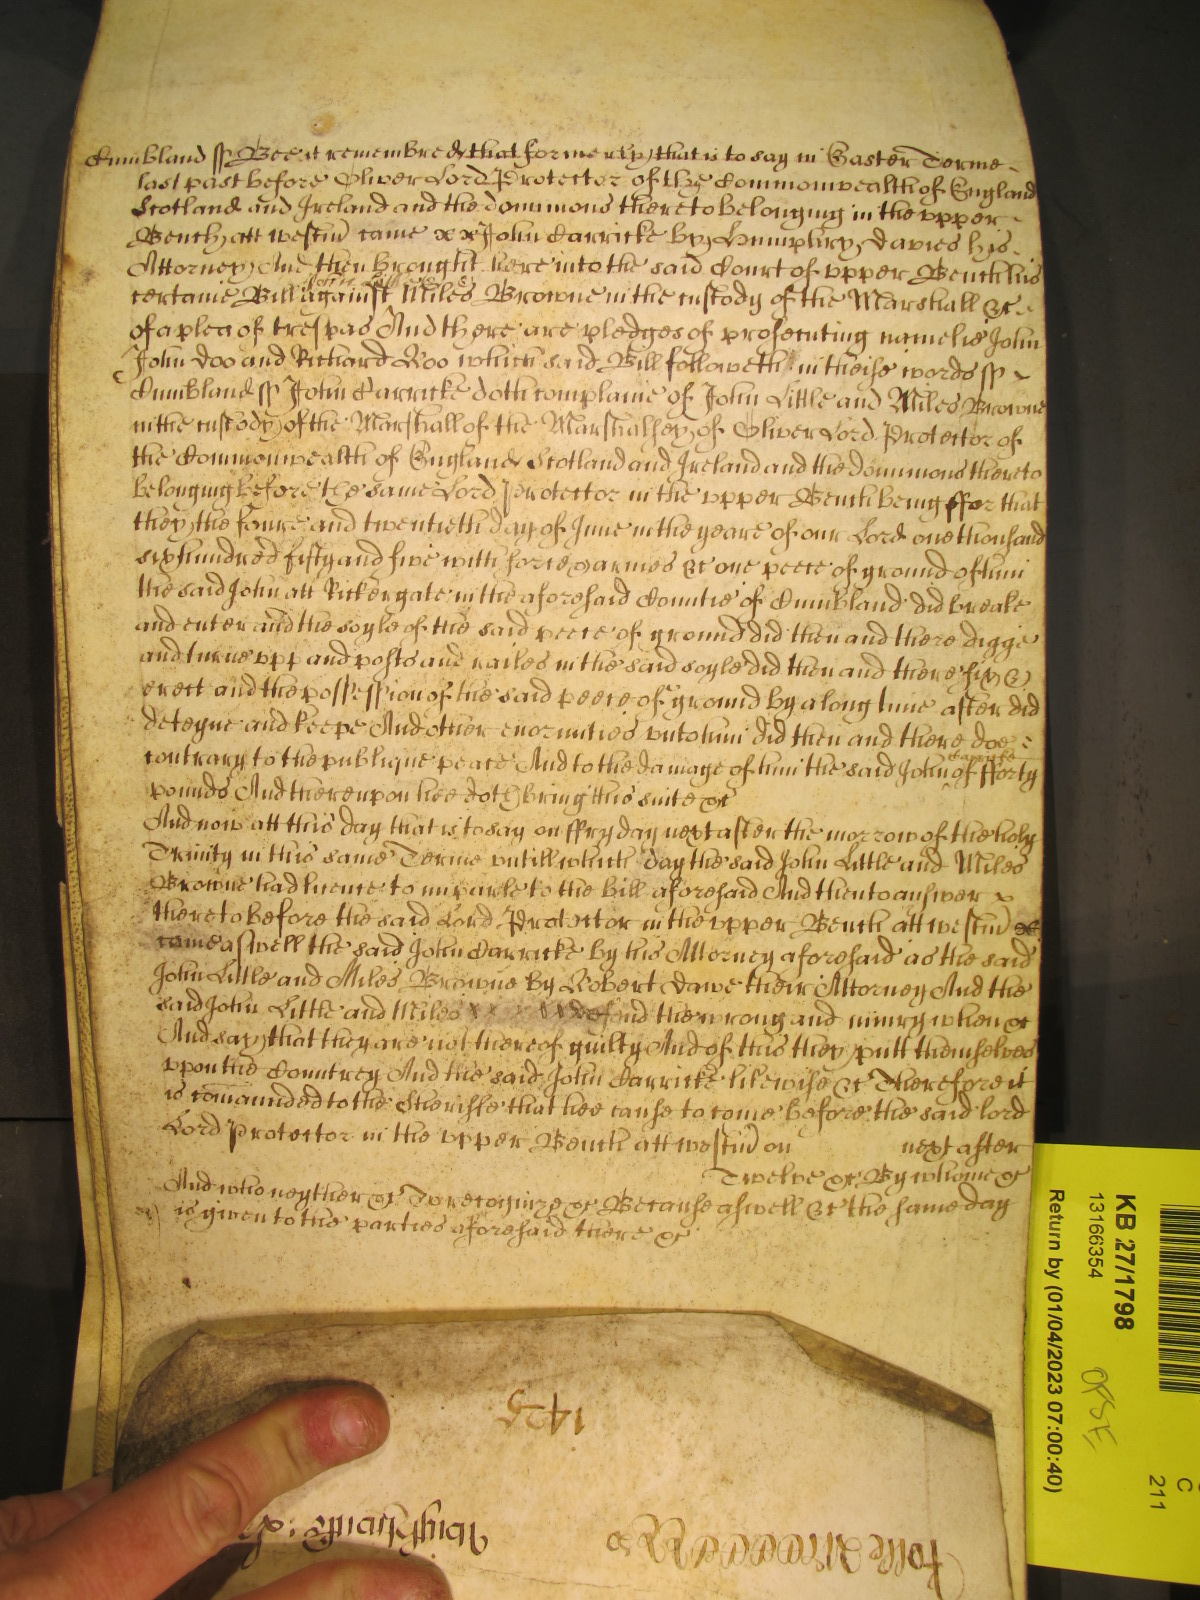 Cumbland ss Bee it remembred that formerly that is to say in Easter Terme
last past before Oliver Lord Protector of the Commonwealth of England
Scotland and Ireland and the dominions thereto belonging in the upper
Bench att westm came x x John Carricke by Humphry Davies his
Attorney And then brought here into the said Court of upper Bench his
certaine Bill against John Little & Miles Browne in the custody of the Marshall &c
of a plea of trespas And there are pledges of prosecuting namelie John
John doo and Richard Roo which said Bill followeth in theise words ss
Cumbland ss John Carricke doth complaine of John Little and Miles Browne
in the custody of the Marshall of the Marshalsey of Oliver Lord Protector of
the Commonwealth of England Scotland and Ireland and the dominions thereto
belonging before the same Lord Protector in the upper Bench being ffor that
they the foure and twentieth day of June in the yeare of our Lord one thousand
six hundred fifty and five with force & armes &c one peece of ground of him
the said John att Rickergate in the aforesaid Countie of Cumbland did breake
and enter and the soyle of the said peece of ground did then and there digge
and turne upp and posts and railes in the said soyle did then and there fix &
erect and the possession of the said peece of ground by a long time after did
deteyne and keepe And other enormities unto him did then and there doe
contrary to the publique peace And to the damage of him the said John Carricke of fforty
pounds And thereupon hee doth bring this suite &c
And now att this day that is to say on ffryday next after the morrow of the holy
Trinity in this same Terme untill which day the said John Little and Miles
Browne had licence to imparle to the Bill aforesaid And then to answer x
thereto before the said Lord Protector in the upper Bench att westm &c
came aswell the said John Carricke by his Attorney aforesaid as the said
John Little and Miles Browne by Robert Dawe their Attorney And the
said John Little and Miles defend the wrong and iniury when &c
And say that they are not thereof guilty And of this they putt themselves
upon the Countrey And the said John Carricke likewise &c Therefore it
is comaunded to the Sheriffe that hee cause to come before the said lord
Lord Protector in the upper Bench att westm on next after
Twelve &c By whome &c
And who neyther &c To recognize &c Because aswell &c the same day
is given to the parties aforesaid there &c
1425
KB 27/1798
13166354
Return by (01/04/2023 07:00:40)
C
211